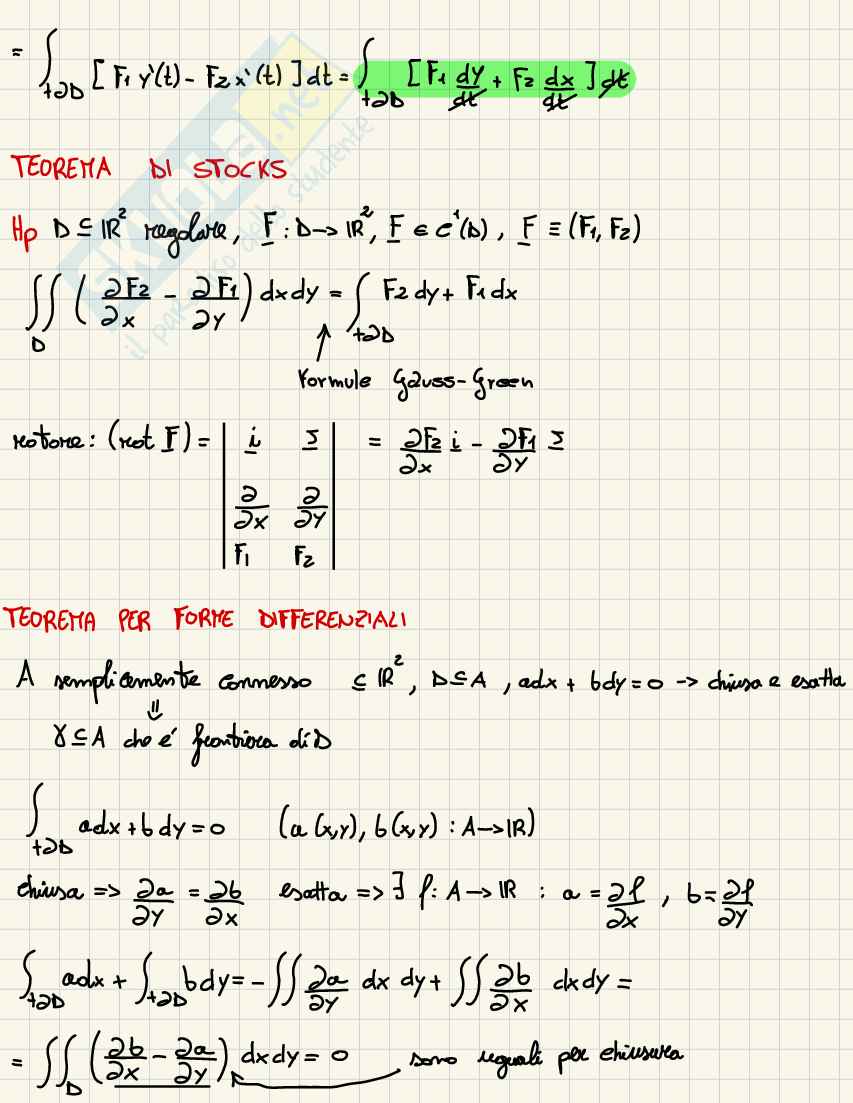 = ∫_{+∂D} [F₁ y'(t) - F₂ x'(t)] dt = ∫_{+∂D} [F₁ dy/dt + F₂ dx/dt] dt
TEOREMA DI STOCKS
Hp D ⊆ ℝ² regolare, F : D → ℝ², F ∈ C¹(D), F ≡ (F₁, F₂)
∬_D (∂F₂/∂x - ∂F₁/∂y) dx dy = ∫_{+∂D} F₂ dy + F₁ dx
Formule Gauss-Green
rotore: (rot F) = | i J | = ∂F₂/∂x i - ∂F₁/∂y J
∂/∂x ∂/∂y
F₁ F₂
TEOREMA PER FORME DIFFERENZIALI
A semplicemente connesso ⊆ ℝ², D ⊆ A, adx + bdy = 0 -> chiusa e esatta
⇓
γ ⊆ A che é frontiera di D
∫_{+∂D} adx + bdy = 0 (a(x,y), b(x,y) : A → ℝ)
chiusa => ∂a/∂y = ∂b/∂x esatta => ∃ f: A → ℝ : a = ∂f/∂x, b = ∂f/∂y
∫_{+∂D} adx + ∫_{+∂D} bdy = -∬ ∂a/∂y dx dy + ∬ ∂b/∂x dx dy =
= ∬_D (∂b/∂x - ∂a/∂y) dx dy = 0 sono uguali per chiusura
SKUOLA.net
il paradiso dello studente